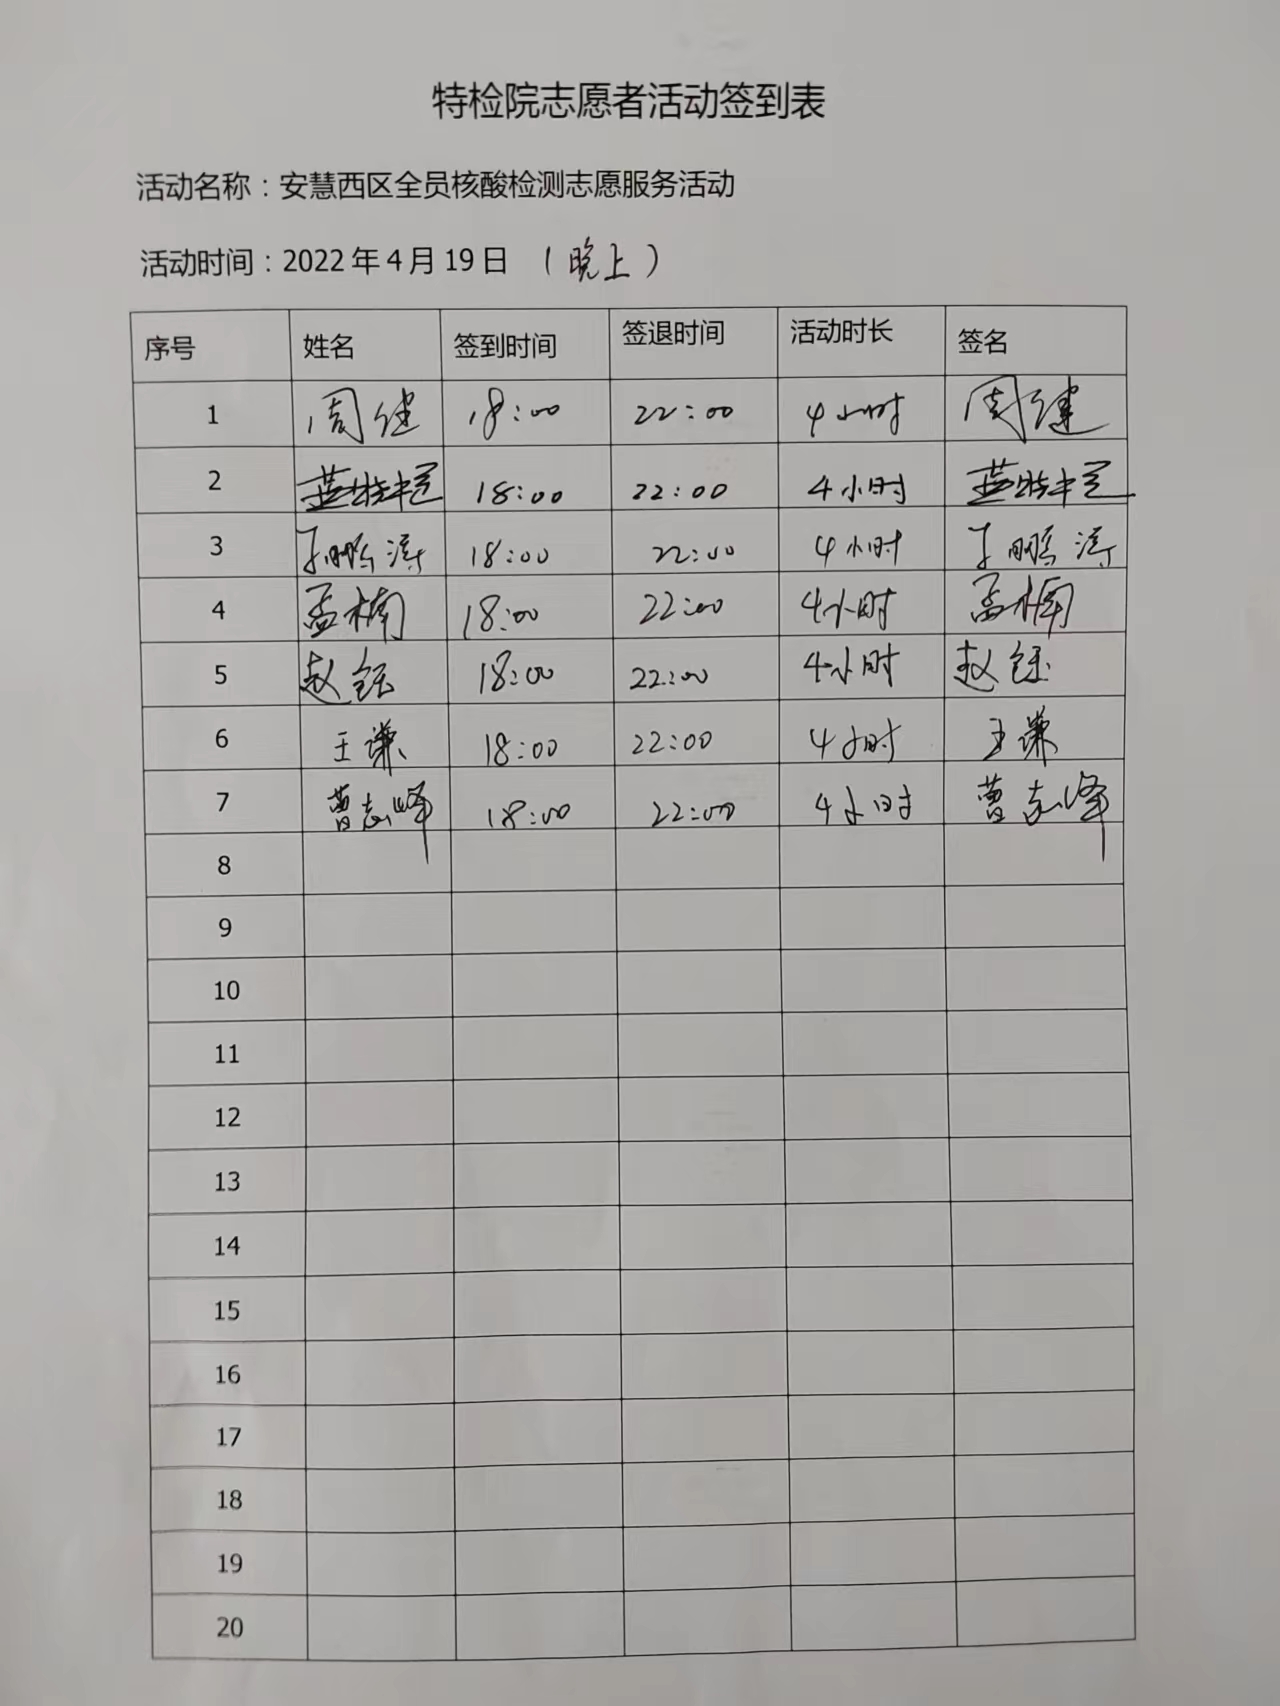 特检院志愿者活动签到表
活动名称：安慧西区全员核酸检测志愿服务活动
活动时间：2022年4月19日 （晚上）
序号 姓名 签到时间 签退时间 活动时长 签名
1 周健 18:00 22:00 4小时 周健
2 18:00 22:00 4小时
3 孙鹏涛 18:00 22:00 4小时 孙鹏涛
4 孟楠 18:00 22:00 4小时 孟楠
5 赵钰 18:00 22:00 4小时 赵钰
6 王谦 18:00 22:00 4小时 王谦
7 曹志峰 18:00 22:00 4小时 曹志峰
8
9
10
11
12
13
14
15
16
17
18
19
20